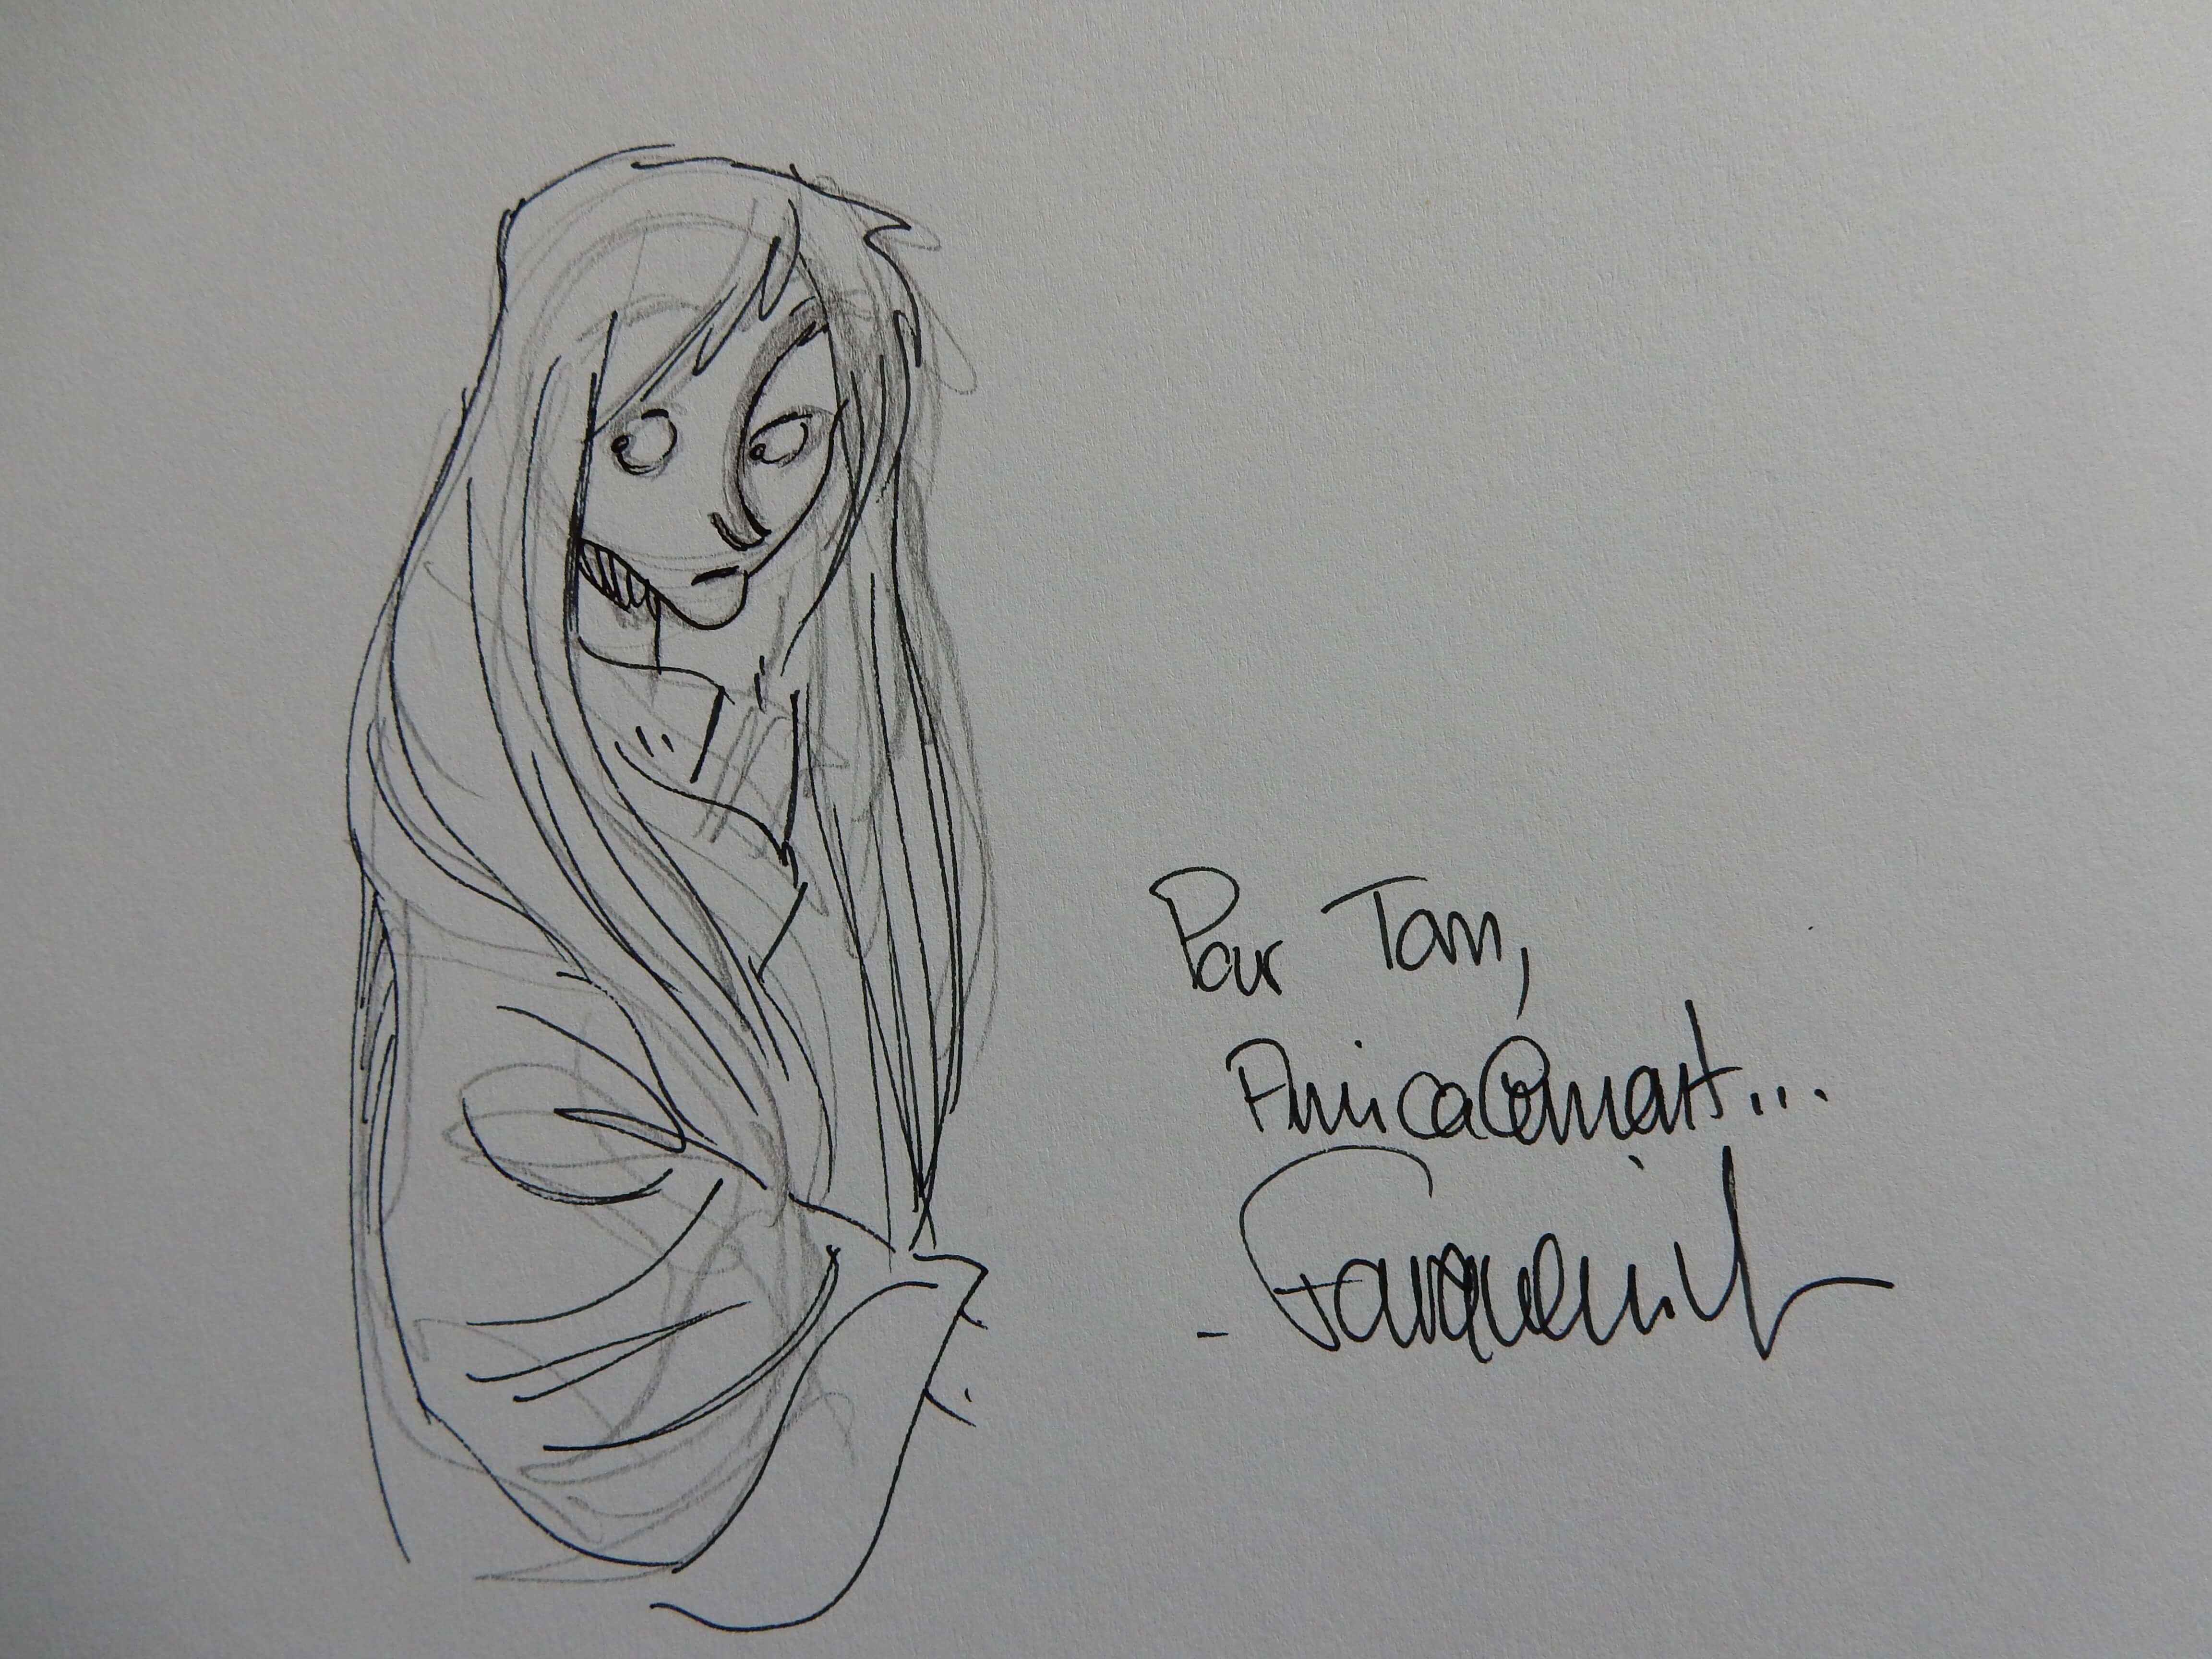 Pour Tam,
Amicalement...